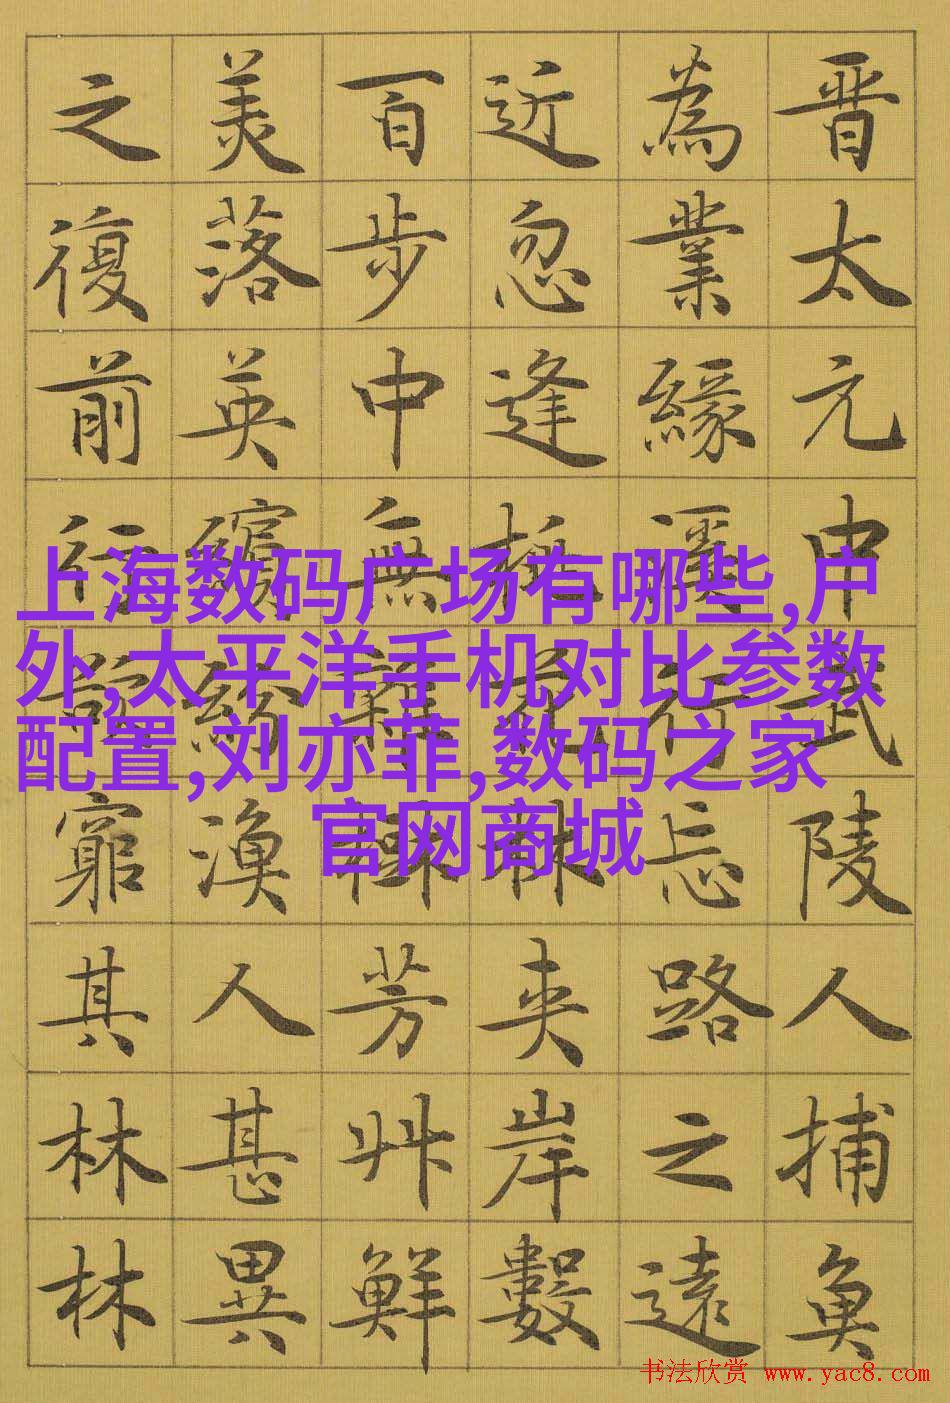 晋太元中武陵人捕魚
為業緣溪行忘路之遠
近忽逢桃花林夾岸數
百步中無雜樹芳艸鮮
美落英繽紛漁人甚異
之復前行欲窮其林林
上海数码广场有哪些,户
外,太平洋手机对比参数
配置,刘亦菲,数码之家
官网商城
书法欣赏 www.yac8.com